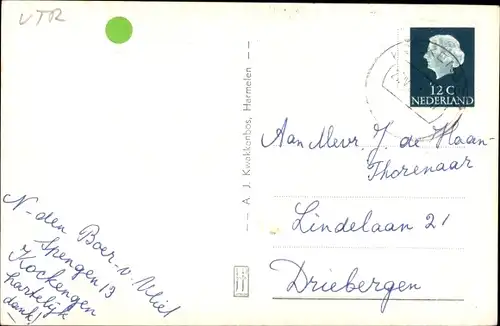 VTR
12 C
NEDERLAND
A. J. Kwakkenbos, Harmelen
Aan Mevr. J. de Haan-
Thorenaar
Lindelaan 21
Driebergen
N- den Boer-v. Vliet
Spengen 13
Kockengen
hartelijk
dank!